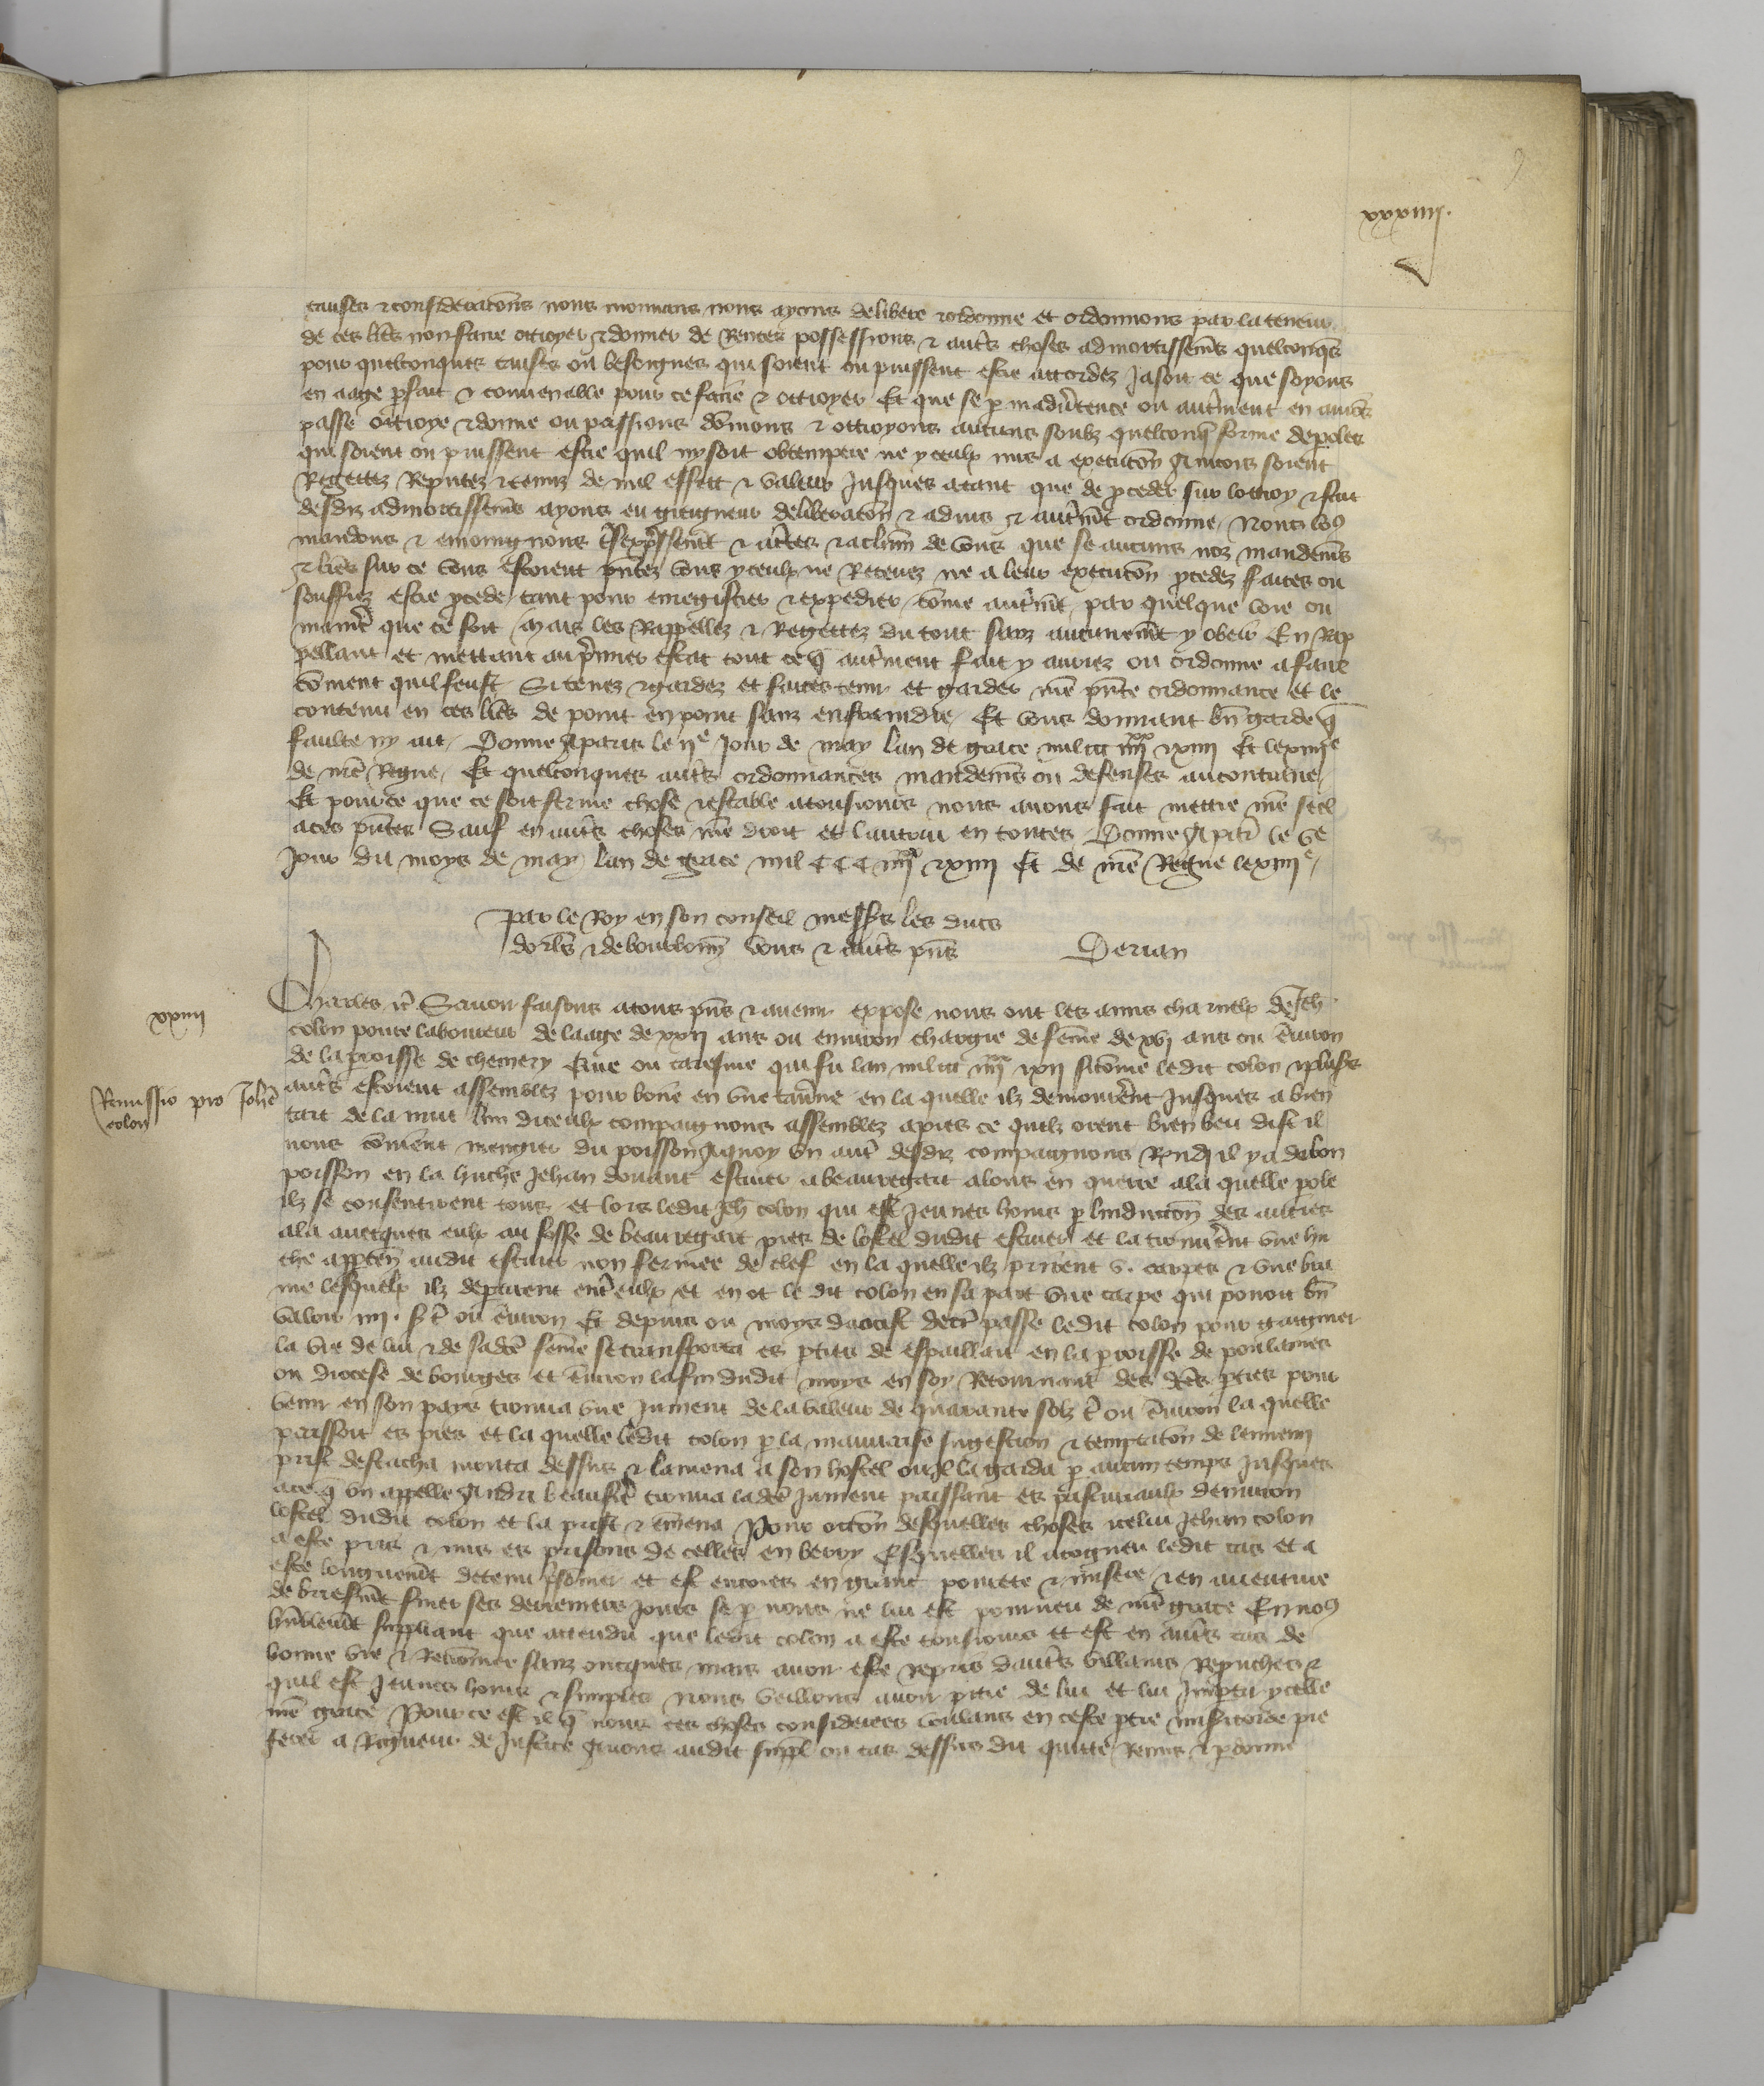 9
xxxiiii.
causes et consideracions nous mouvans nous ayons delibere et ordonne et ordonnons par la teneur
de ces lres non faire ottroyer et donner de Rentes possessions et autres choses admortissemens quelconques
pour quelconques causes ou besoignes qui soient ou puissent estre accordez Jasoit ce que soyons
en aage pfait et convenable pour ce faire et ottroyer Et que se p inadvertence ou autrement en avons
passe ottroye et donne ou passions donnons et ottroyons aucuns soubz quelconque forme de poles
qui soient ou puissent estre quil ny soit obtempere ne yceulx mis a execucion Aincois soient
Regettez Reputez et tenuz de nul effect et valeur Jusques atant que de pceder sur lottroy et fait
desdiz admortissemens ayons eu greigneur deliberacion et advis et autrement ordonne Nous vous
mandons et enjoignons tresexpressement et a chun de vous que se aucuns noz mandemens
et lres sur ce vous estoient pntez vous yceulx ne Recevez ne a leur execucion pcedez faites ou
souffrez estre pcede tant pour enregistrer et expedier come autrement par quelque voie ou
maniere que ce soit Mais les Rappellez et Regettez du tout sanz aucunement y obeir En Rap
pellant et mettant au premier estat tout ce que autrement fait y auriez ou ordonne a faire
coment quil feust Si tenez et gardez et faites tenir et garder nre pnte ordonnance et le
contenu en ces lres de point en point sanz enfraindre Et vous donnant bn garde que
faulte ny ait Donne A paris le iie Jour de may lan de grace mil ccc iiiixx xiiii Et le xiiiie
de nre Regne Et quelconques autres ordonnances mandemens ou defenses au contraire
Et pour ce que ce soit ferme chose et estable atousiours nous avons fait mettre nre seel
a ces pntes Sauf en autres choses nre droit et lautrui en toutes Donne A paris le ve
Jour du moys de may lan de grace mil CCC iiiixx xiiii Et de nre Regne le xiiiie
Par le Roy en son conseil messrs les ducs
dorlns et de bourbonn vous et autres pns Derian
xxiiii
Remissio pro Johe
colon
Charles etc Savoir faisons a tous pns et avenir expose nous ont les amis charnelx de Jeh
colon povre laboureur de laage de xxii ans ou environ chargie de feme de xvi ans ou environ
de la proisse de chemery Que ou caresme qui fu lan mil ccc iiiixx xii sicome ledit colon et plusrs
autres estoient assemblez pour boire en une taverne en la quelle ilz demourerent Jusques a bien
tart de la nuit lun diceulx compaignons assemblez apres ce quilz orent bien beu dist il
nous convient mengier du poisson A quoy un autre desdiz compaignons Rendi il y a de bon
poisson en la huche Jehan escuier a beauregart alons en querre a la quelle pole
ilz se consentirent tous et lors ledit Jeh colon qui est Jeunes homs p linduction des autres
ala avecques eulx au fosse de beauregart pres de lostel dudit escuier et la trouverent une hu
che apptenant audit escuier non fermee de clef en la quelle ilz prirent v. carpes et une bra
me lesquelx ilz departirent entre eulx et en ot le dit colon en sa part une carpe qui povoit bn
valoir iiii. s t ou environ Et depuis ou moys daoust derr passe ledit colon pour gaigner
la vie de lui et de sadicte feme se transporta es pties de espaillart en la proisse de poulaines
ou diocese de bourges et environ la fin dudit moys en soy Retournant des dictes pties pour
venir en son pays trouva une Jument de la valeur de quarante solz t ou environ la quelle
paissoit es prez et la quelle ledit colon p la mauvaise sugestion et temptacion de lennemi
prist destacha monta dessus et lamena a son hostel ou Il la garda p aucun temps Jusques
a ce que un appelle Andri trouva ladicte Jument paissant es pasturaulx denviron
lostel dudit colon et la prist et emena Pour occasion desquelles choses icelui Jehan colon
a este pris et mis es prisons de celles en berry Esquelles il a cogneu ledit cas et a
este longuement detenu prisonnier et est encores en grant povrete et misere et en aventure
de briefment finer ses derreniers Jours se p nous ne lui est pourveu de nre grace En nous
humblement suppliant que attendu que ledit colon a este tousiours et est en autres cas de
bonne vie et Renommee sanz oncques mais avoir este repris dautres villains Reprouches et
quil est Jeunes homs et simples nous veillions avoir pitie de lui et lui Impartir ycelle
nre grace Pour ce est il que nous ces choses considerees voulans en ceste ptie misericorde pre
ferer a Rigueur de Justice Avons audit suppl ou cas dessus dit quitte Remis et pdonne